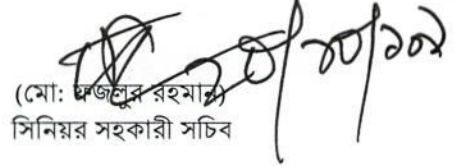 (মো: ফজলুর রহমান)
সিনিয়র সহকারী সচিব